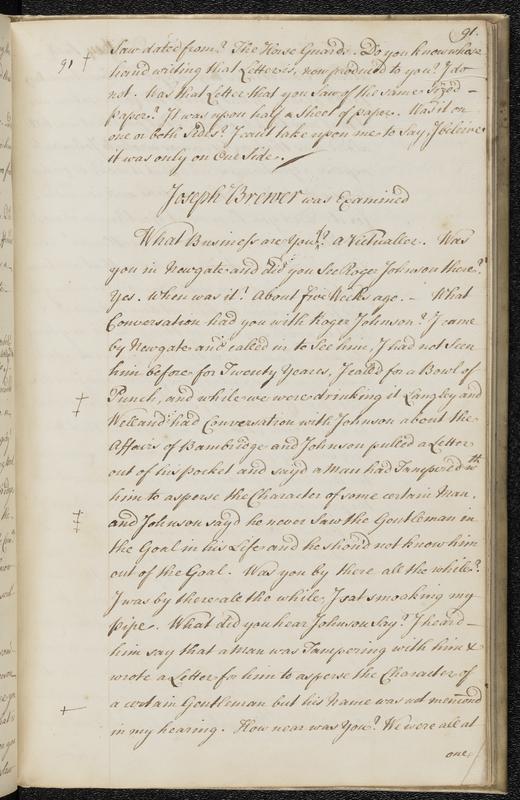 91.
Saw dated from? The Horse Guards. Do you know whose
91 †
hand writing that Letter is, now produced to you? I do
not. Was that Letter that you Saw of the same Sized
paper? It was upon half a Sheet of paper. Was it on
one or both Sides? I cant take upon me to Say, I beleive
it was only on One Side.
Joseph Brewer was Examined
What Business are You? a Victualler. Was
you in Newgate and did you See Roger Johnson there?
Yes. When was it? About five Weeks ago. – What
Conversation had you with Roger Johnson? I came
by Newgate and called in to See him, I had not Seen
him before for Twenty Years, I called for a Bowl of
Punch, and while we were drinking it Langley and
Welland had Conversation with Johnson about the
Affairs of Bambridge and Johnson pulled a Letter
out of his Pocket and sayd a Man had Tampered wth
him to asperse the Character of some certain Man,
and Johnson sayd he never Saw the Gentleman in
the Goal in his Life and he shoud not know him
out of the Goal. Was you by there all the while?
I was by there all the while, I sat smoaking my
Pipe. What did you hear Johnson Say? I heard
him say that a Man was Tampering with him &
wrote a Letter for him to asperse the Character of
a certain Gentleman but his Name was not mentiond
in my hearing. How near was You? We were all at
one